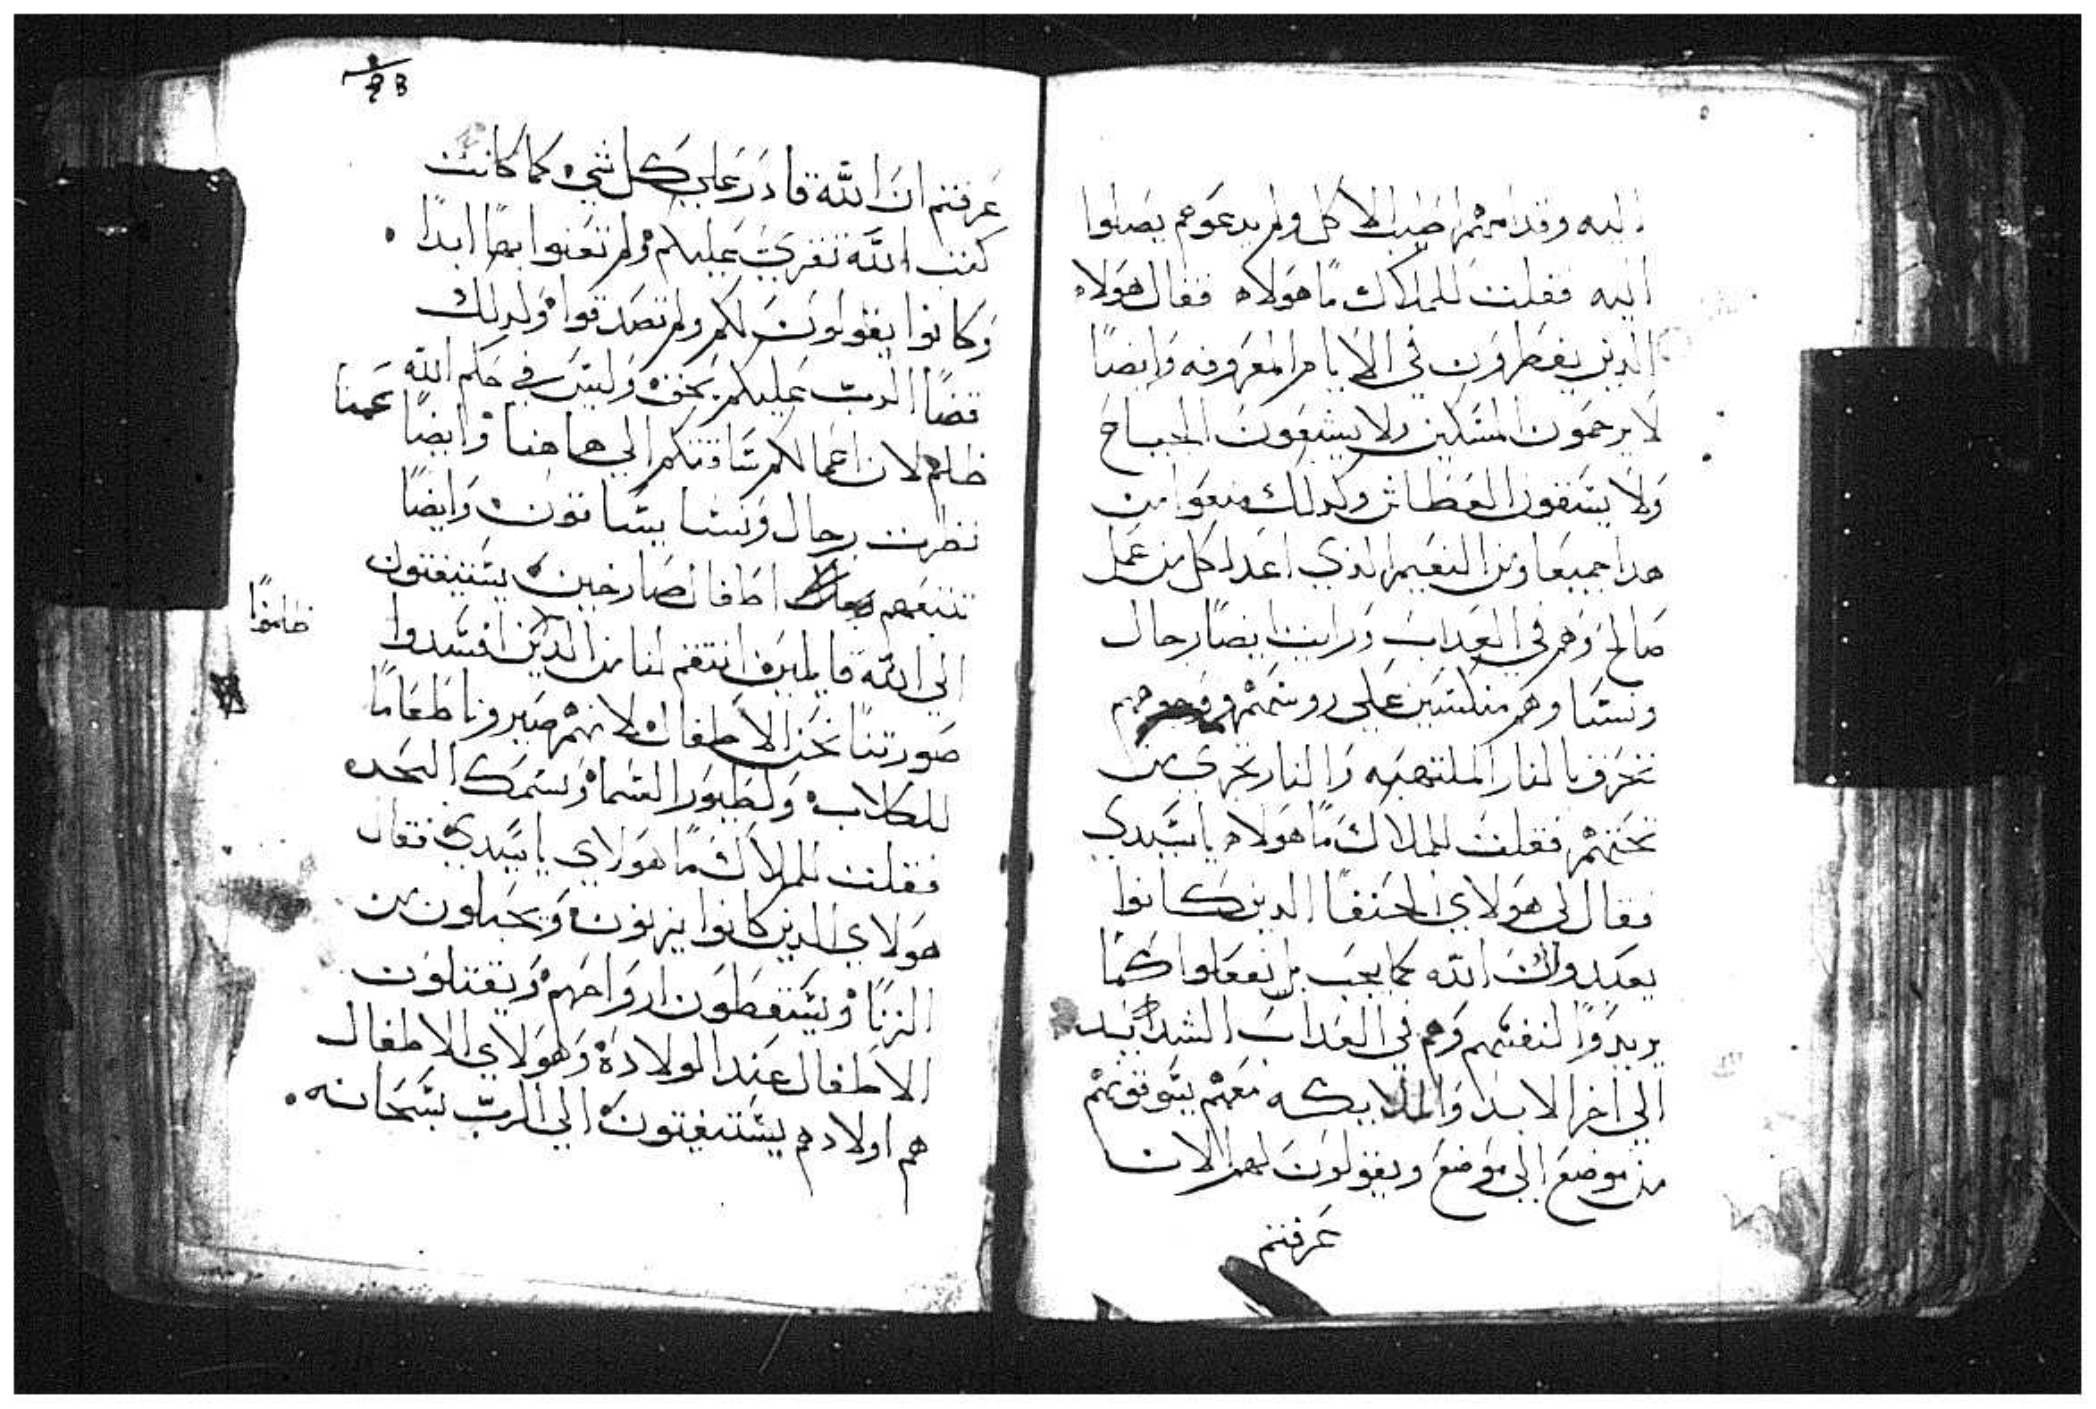 اليه وقدامهم اطيب الاكل ولم يدعوهم يصلوا
اليه فقلت للملاك ما هولاء فقال هولاء
الدين يفطرون في الايام المعروفه وايضا
لا يرحمون المسكين ولا يشبعون الجياع
ولا يسقون العطاش وكدلك منعوا من
هدا جميعا ومن النعيم الذي اعد لكل من عمل
صالح وهم في العداب ورايت ايضا رجال
ونسا وهم منكسين علي روسهم ووجوههم
تحرق بالنار الملتهبه والنار تجري من
تحتهم فقلت للملاك ما هولاء ياسيدي
فقال لي هولاي الحنفا الدين كانوا
يعبدوا الله كما يجب بل يفعلوا كما
يريدوا لنفسهم وهم في العداب الشدايد
الي اخر الابد والملايكه معهم يسوقونهم
من موضع الي موضع ويقولون لهم الان
عرفتم
عرفتم ان الله قادر علي كل شي كما كانت
كتب الله تقري عليكم ولم تعنوا بها ابدا
وكانوا يقولون لكم ولم تصدقوا ولدلك
قضا الرب عليكم بحق وليس في حكم الله
ظلم لان اعمالكم ساقتكم الي هاهنا وايضا
نظرت رجال ونسا يساقون وايضا
تتبعهم اطفال صارخين يستغيتون
الي الله قايلين انتقم لنا من الدين افسدوا
صورتنا نحن الاطفال لانهم صيرونا طعاما
للكلاب ولطيور السما وسمك البحر
فقلت للملاك ما هولاي ياسيدي فقال
هولاي الدين كانوا يزنون ويحبلون من
الزنا ويسقطون ارواحهم ويقتلون
الاطفال عند الولاده وهولاي الاطفال
هم اولادهم يستغيتون الي الرب سبحانه